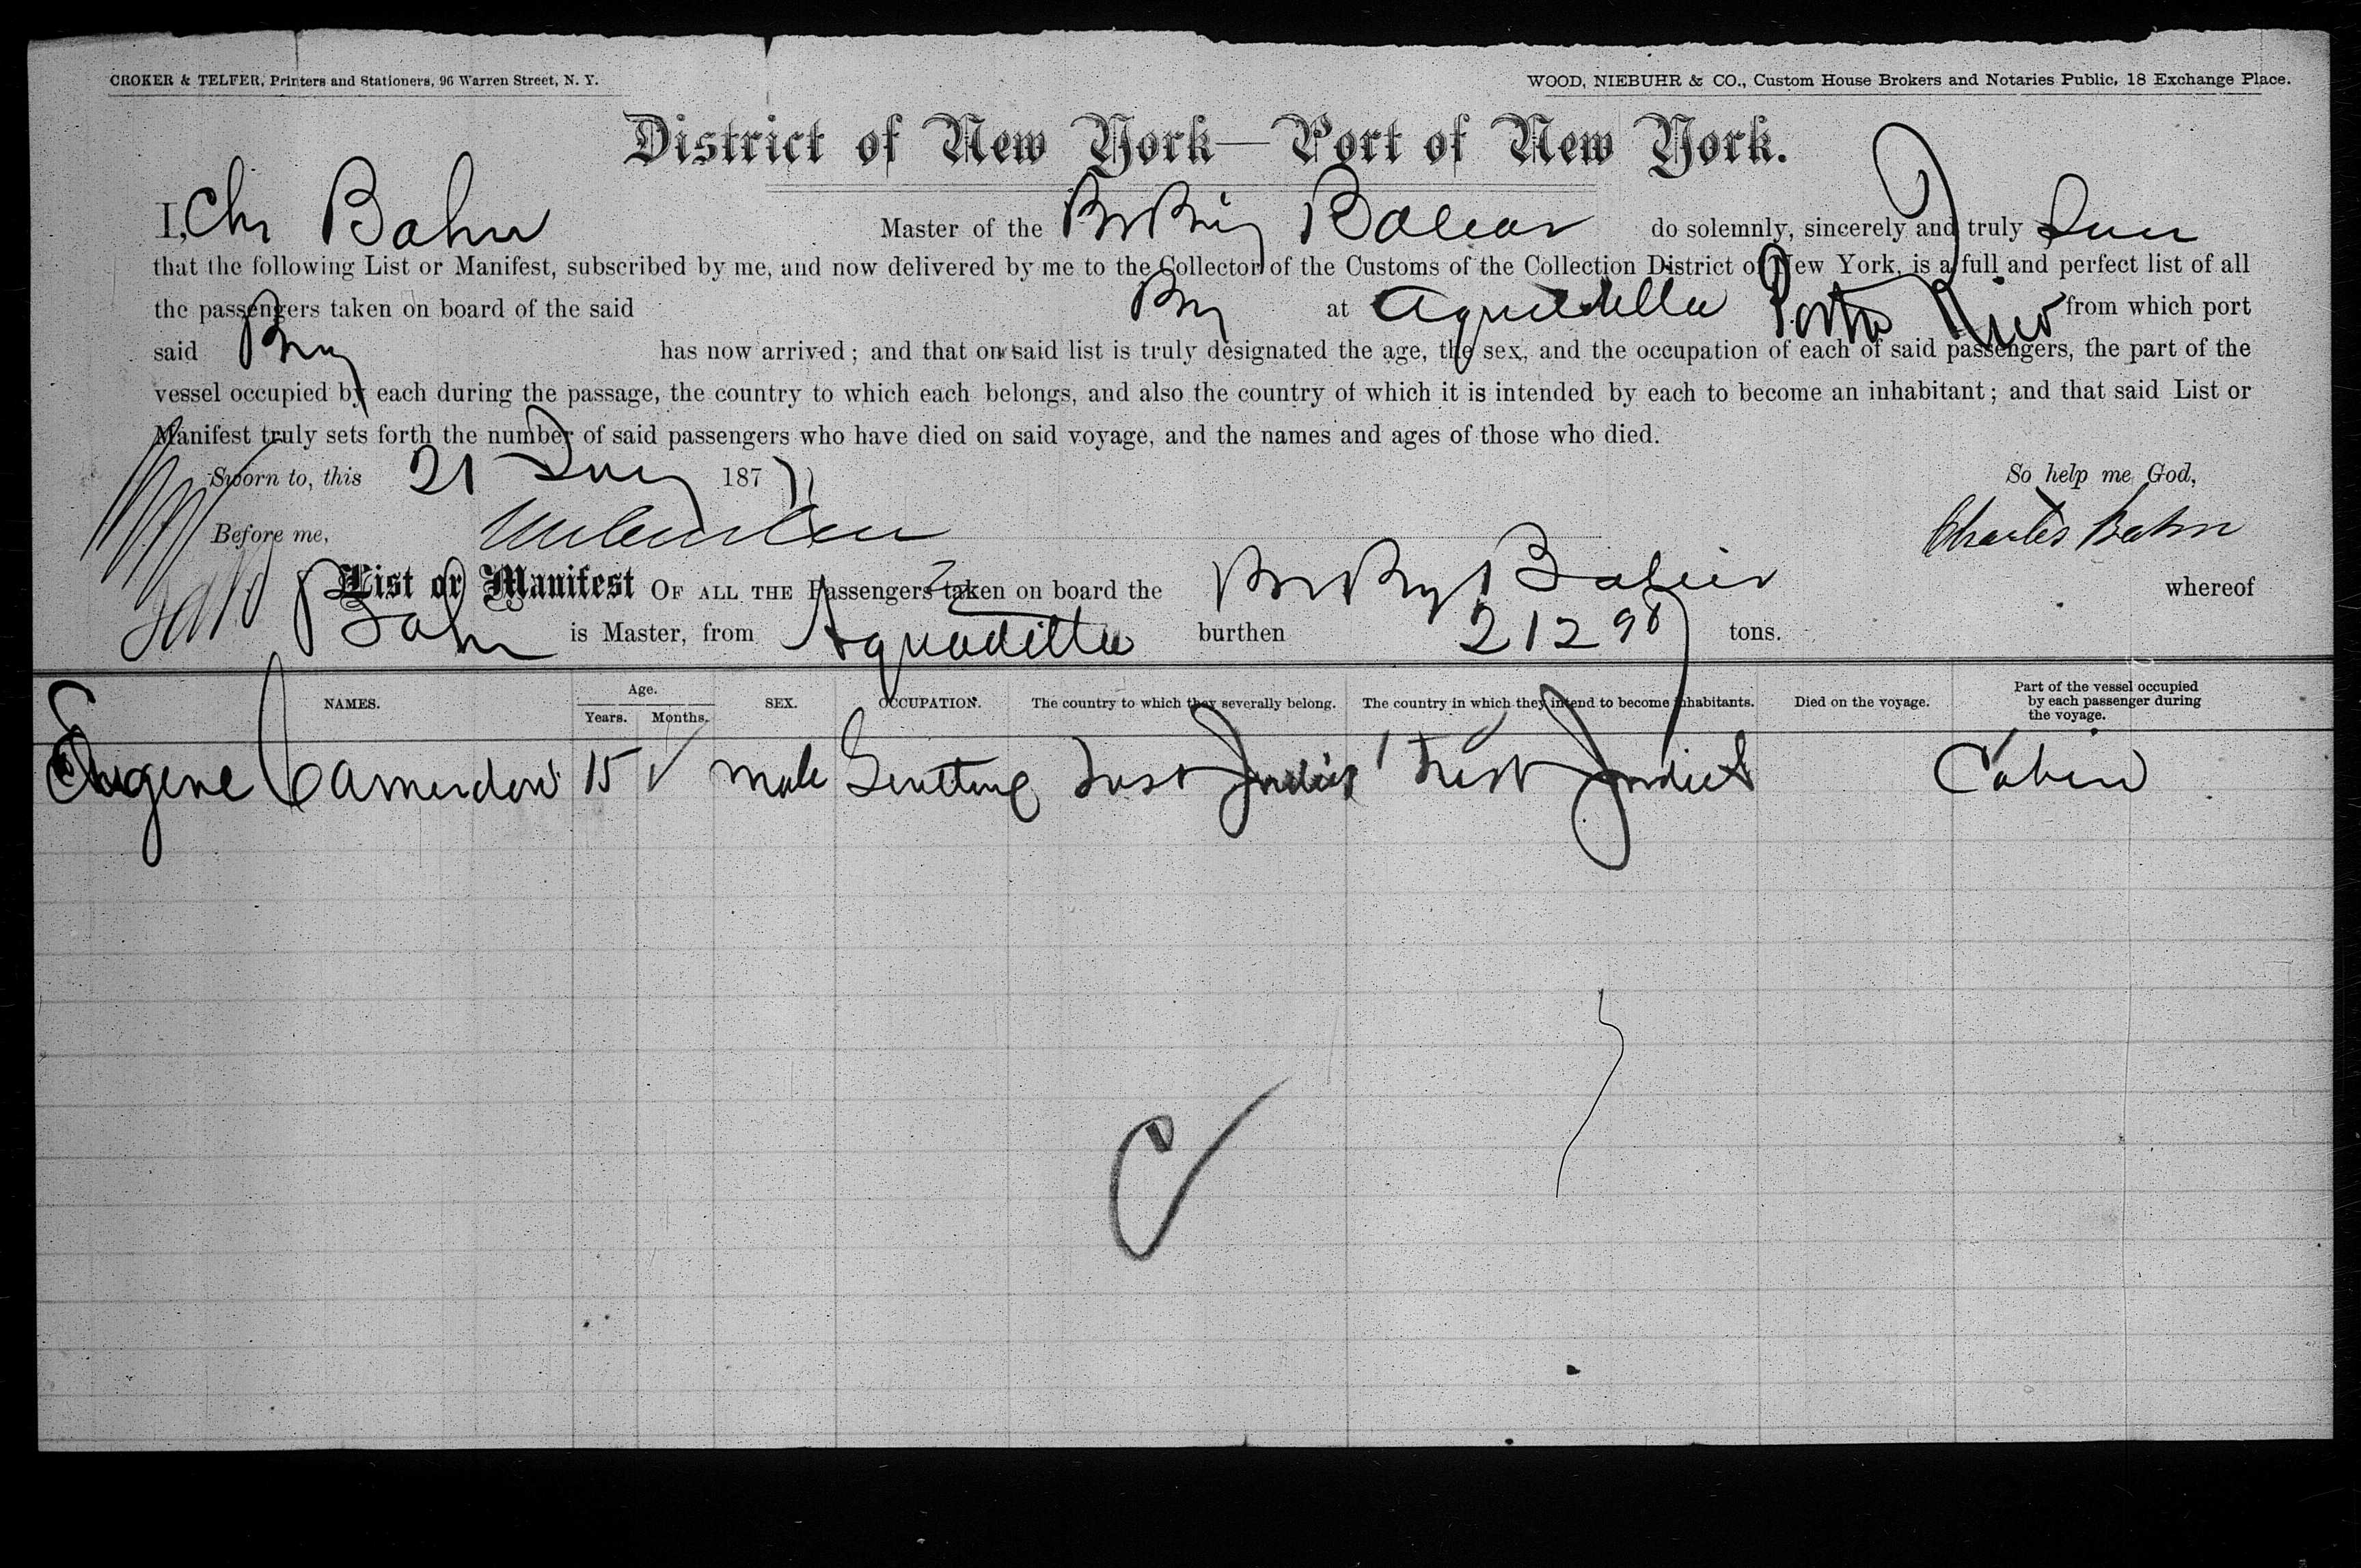 CROKER & TELFER, Printers and Stationers, 96 Warren Street, N. Y.
WOOD, NIEBUHR & CO., Custom House Brokers and Notaries Public, 18 Exchange Place.
District of New York—Port of New York.
I, Chs Bahn Master of the Br Brig do solemnly, sincerely and truly Swear
that the following List or Manifest, subscribed by me, and now delivered by me to the Collector of the Customs of the Collection District of New York, is a full and perfect list of all
the passengers taken on board of the said Brig at Aguadilla Porto Rico from which port
said Brig has now arrived; and that on said list is truly designated the age, the sex, and the occupation of each of said passengers, the part of the
vessel occupied by each during the passage, the country to which each belongs, and also the country of which it is intended by each to become an inhabitant; and that said List or
Manifest truly sets forth the number of said passengers who have died on said voyage, and the names and ages of those who died.
Sworn to, this 21 187 So help me God,
Before me, Charles Bahn
List or Manifest OF ALL THE Passengers taken on board the Br Brig whereof
Bahn is Master, from Aguadilla burthen 212 98 tons.
NAMES. Age. Years. Months. SEX. OCCUPATION. The country to which they severally belong. The country in which they intend to become inhabitants. Died on the voyage. Part of the vessel occupied by each passenger during the voyage.
Eugene 15 male West Indies West Indies Cabin
C